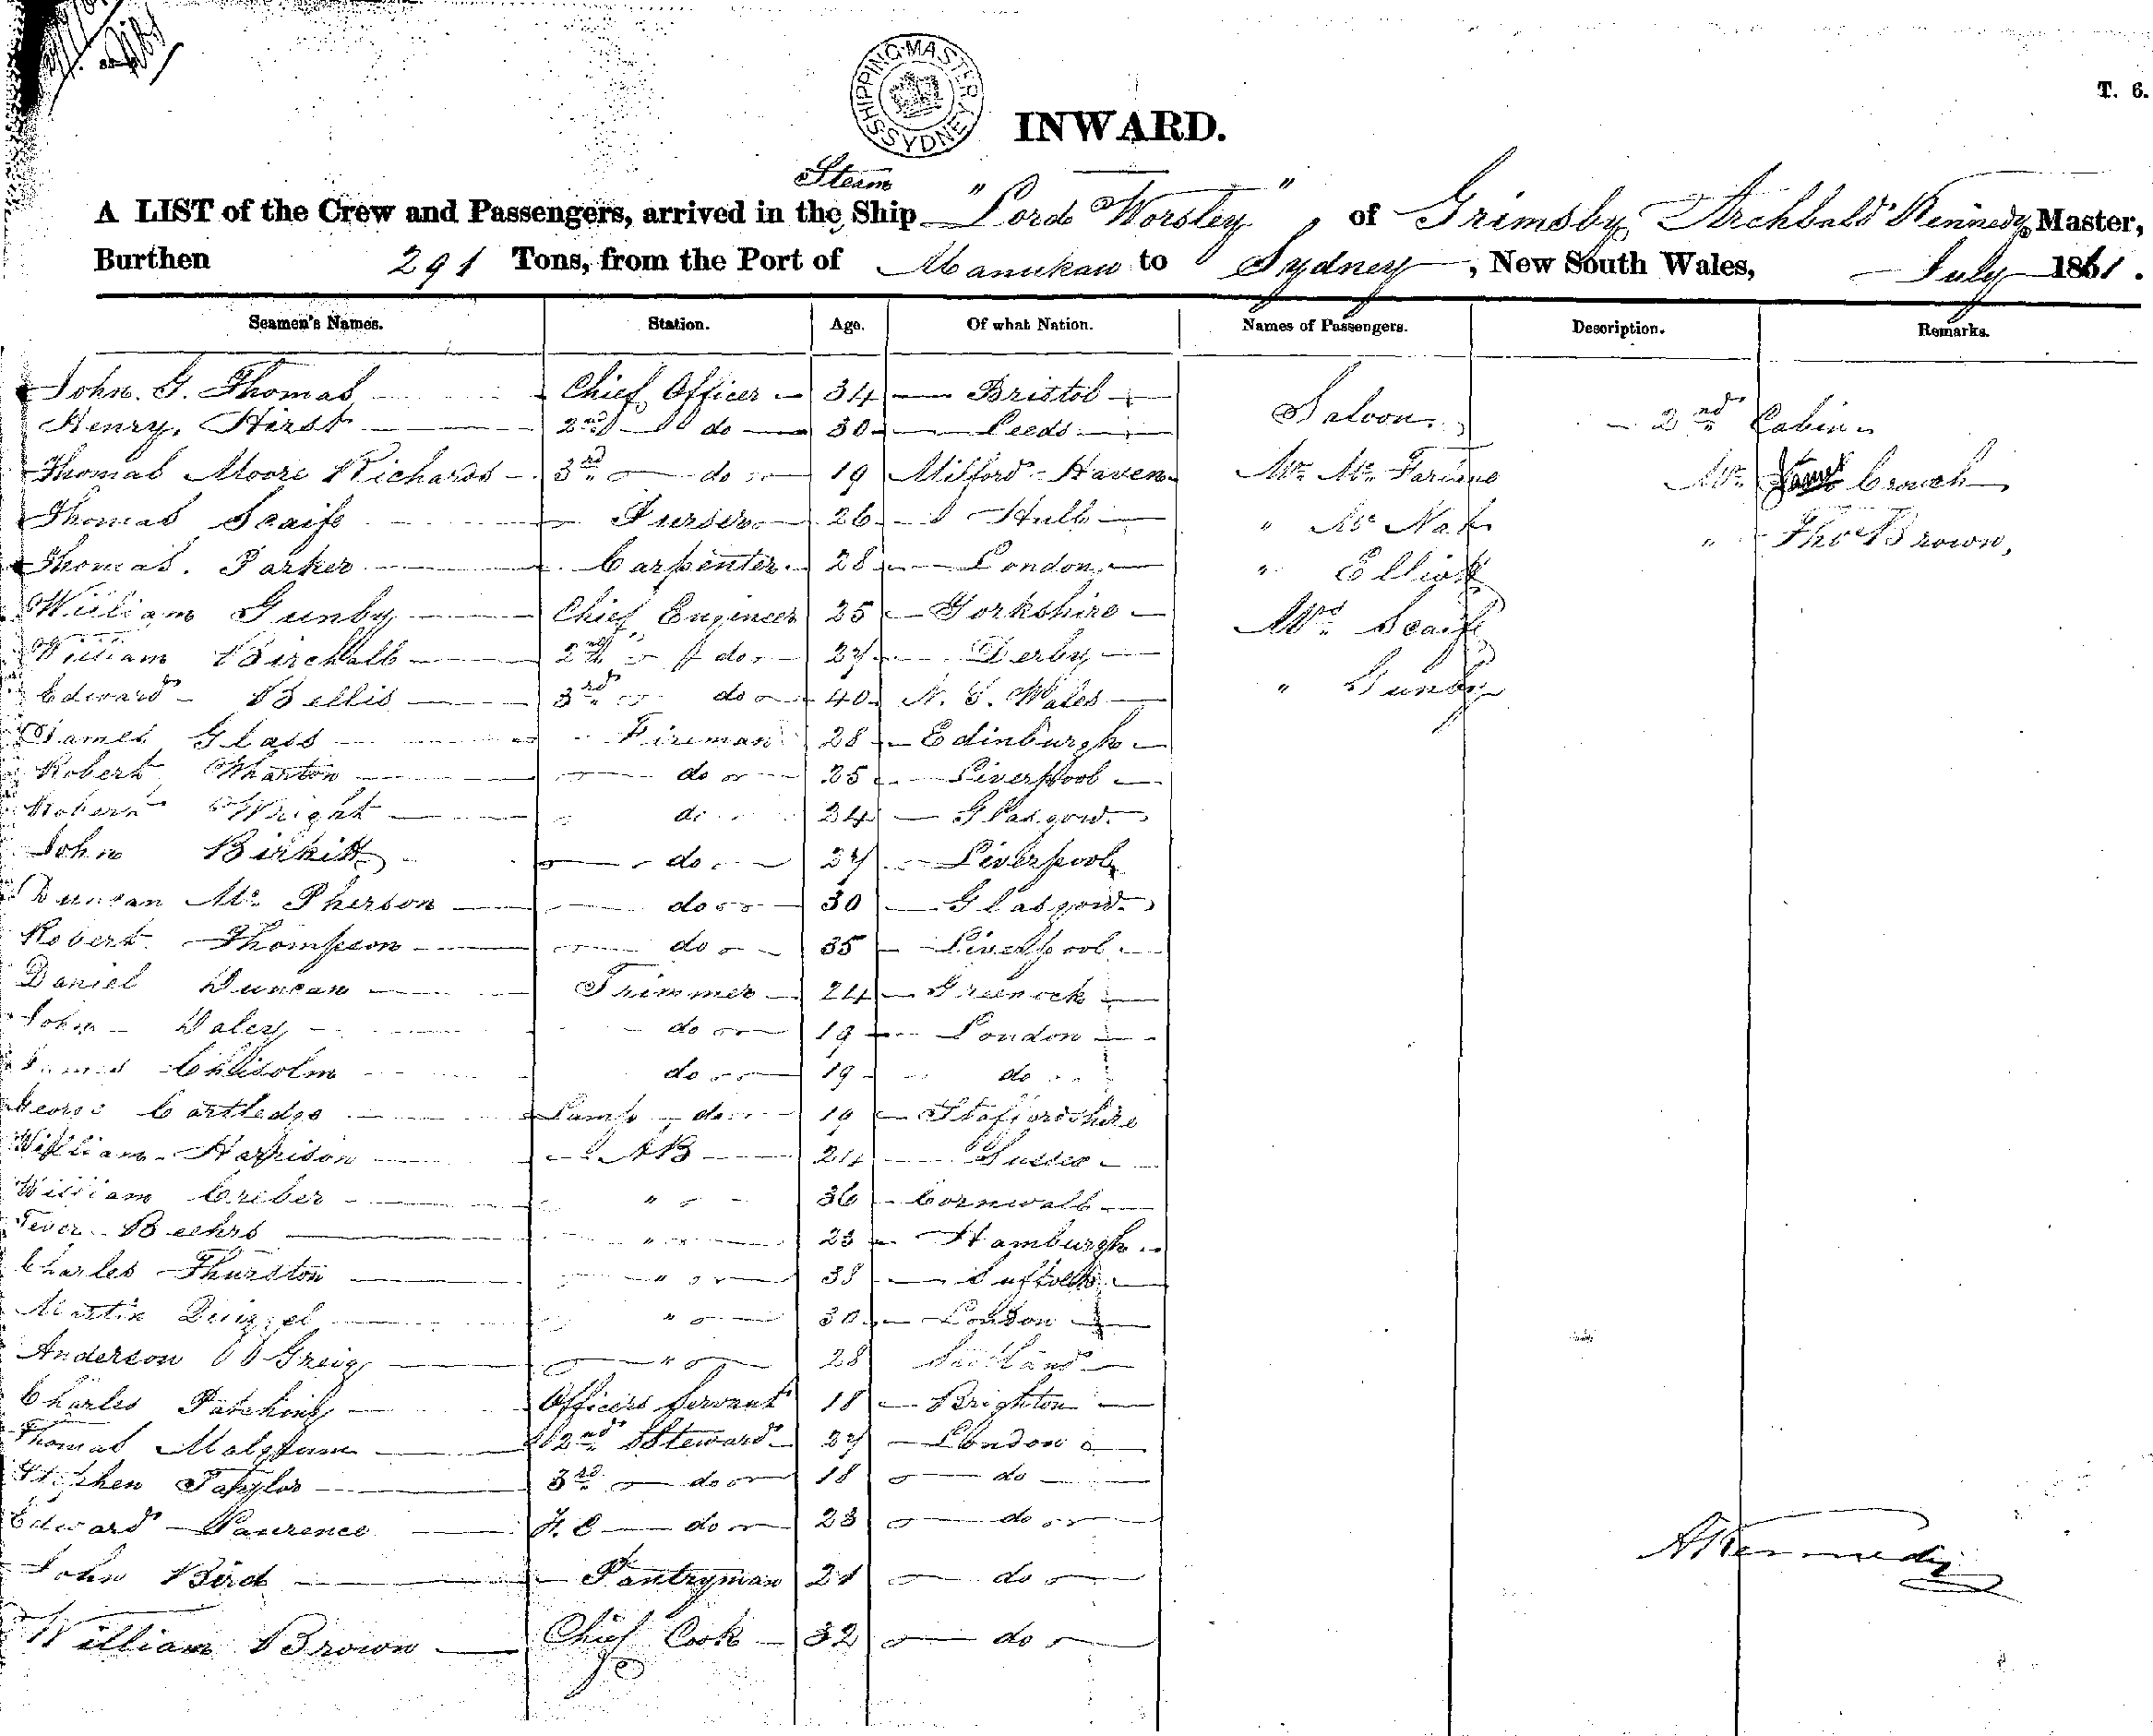 SHIPPING MASTER SYDNEY
T. 6.
INWARD.
Steam
A LIST of the Crew and Passengers, arrived in the Ship "Lord Worsley", of Grimsby, Archbald Kennedy Master,
Burthen 291 Tons, from the Port of Manukau to Sydney, New South Wales, July 1861.
Seamen's Names. Station. Age. Of what Nation. Names of Passengers. Description. Remarks.
John. G. Thomas Chief Officer 34 Bristol Saloon 2nd Cabin
Henry Hirst 2nd do 30 Leeds
Thomas Moore Richards 3rd do 19 Milford Haven Mr. Mc Farlane Mr. Crouch
Thomas Scaife Purser 26 Hull " Mc Nab " Thos Brown,
Thomas. Parker Carpenter 28 London " Elliott
William Gunby Chief Engineer 25 Yorkshire Mrs. Scaife
William Birchall 2nd do 27 Derby
Edward Bellis 3rd do 40 N. S. Wales " Gunby
James Glass Fireman 28 Edinburgh
Robert Wharton do 25 Liverpool
Robert Wright do 24 Glasgow
John Birkitt do 27 Liverpool
Duncan Mc Pherson do 30 Glasgow
Robert Thompson do 35 Liverpool
Daniel Duncan Trimmer 24 Greenock
John Daley do 19 London
James Chlisolm do 19 do
George Cartledge Lamp do 19 Staffordshire
William Harrison AB 24
William Criber " 36 Cornwall
Beehrs " 23 Hamburgh
Charles Thurston " 38 Suffolk
Martin " 30 London
Anderson Greig " 28 Scotland
Charles Patching Officers Servant 18 Brighton
Thomas 2nd Steward 27 London
Stephen Taylor 3rd do 18 do
Edward Laurence F. C do 23 do
John Bird Pantryman 21 do
AKennedy
William Brown Chief Cook 32 do